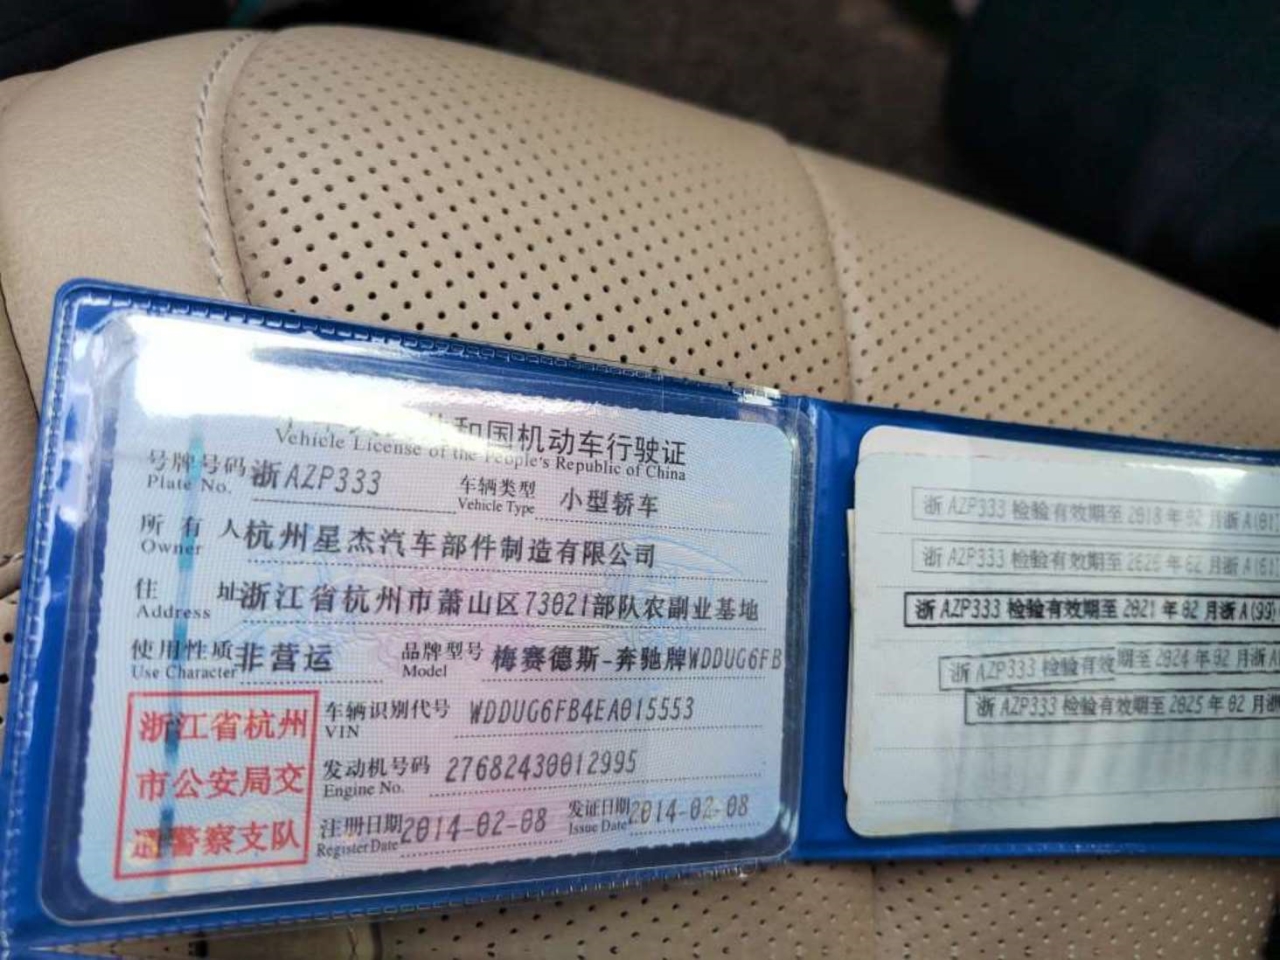 和国机动车行驶证
Vehicle License of the People's Republic of China
号牌号码 浙AZP333 车辆类型 小型轿车
Plate No. Vehicle Type
所有人 杭州星杰汽车部件制造有限公司
Owner
住址 浙江省杭州市萧山区73021部队农副业基地
Address
使用性质 非营运 品牌型号 梅赛德斯-奔驰牌WDDUG6FB
Use Character Model
浙江省杭州
市公安局交
通警察支队
车辆识别代号 WDDUG6FB4EA015553
VIN
发动机号码 27682430012995
Engine No.
注册日期 2014-02-08 发证日期 2014-02-08
Register Date Issue Date
浙AZP333 检验有效期至 2018年02月浙A(01
浙AZP333 检验有效期至 2020年02月浙A(01
浙AZP333 检验有效期至 2021年02月浙A(99)
浙AZP333 检验有效期至 2024年02月浙A
浙AZP333 检验有效期至 2025年02月浙